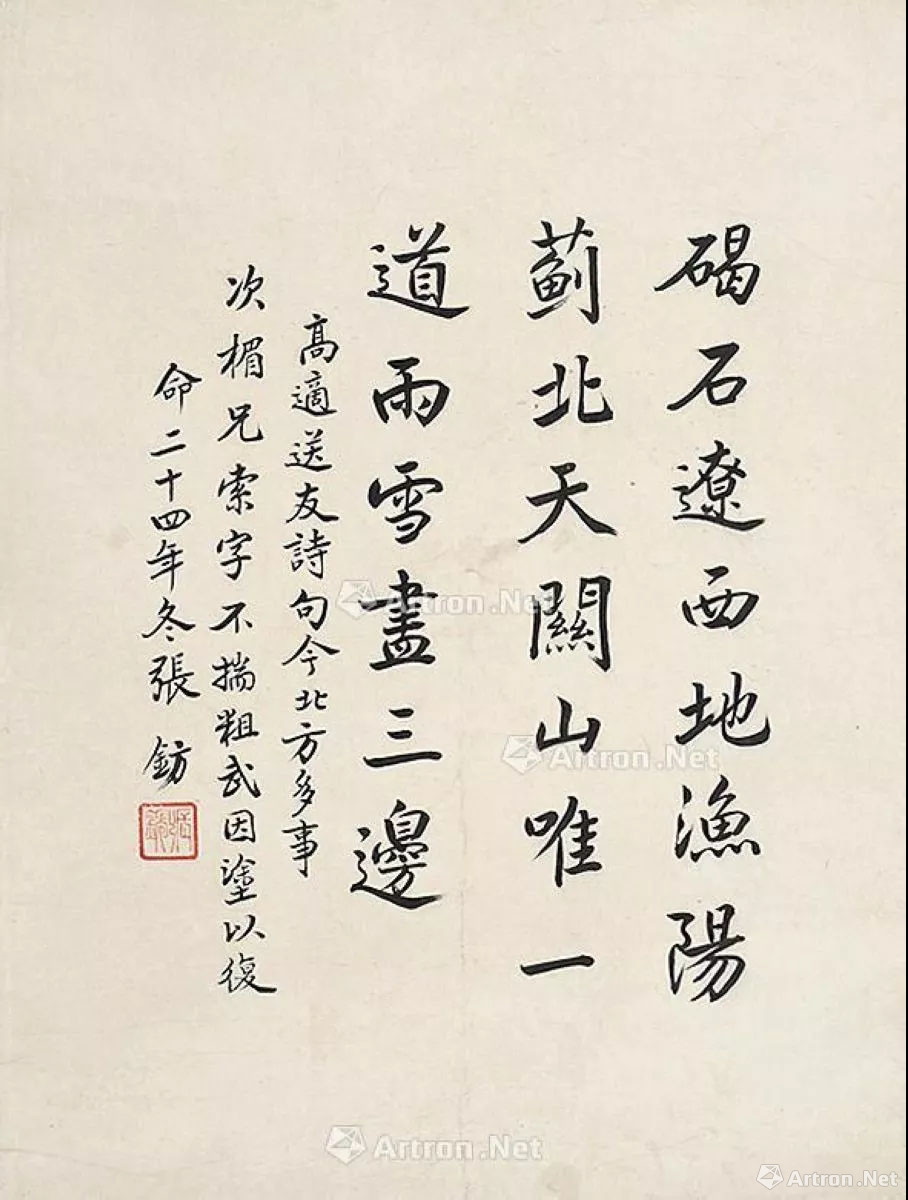 碣石遼西地漁陽
薊北天關山唯一
道雨雪盡三邊
高適送友詩句今北方多事
次楣兄索字不揣粗武因塗以復
命二十四年冬張鈁
張鈁
Artron.Net
Artron.Net
Artron.Net
Artron.Net